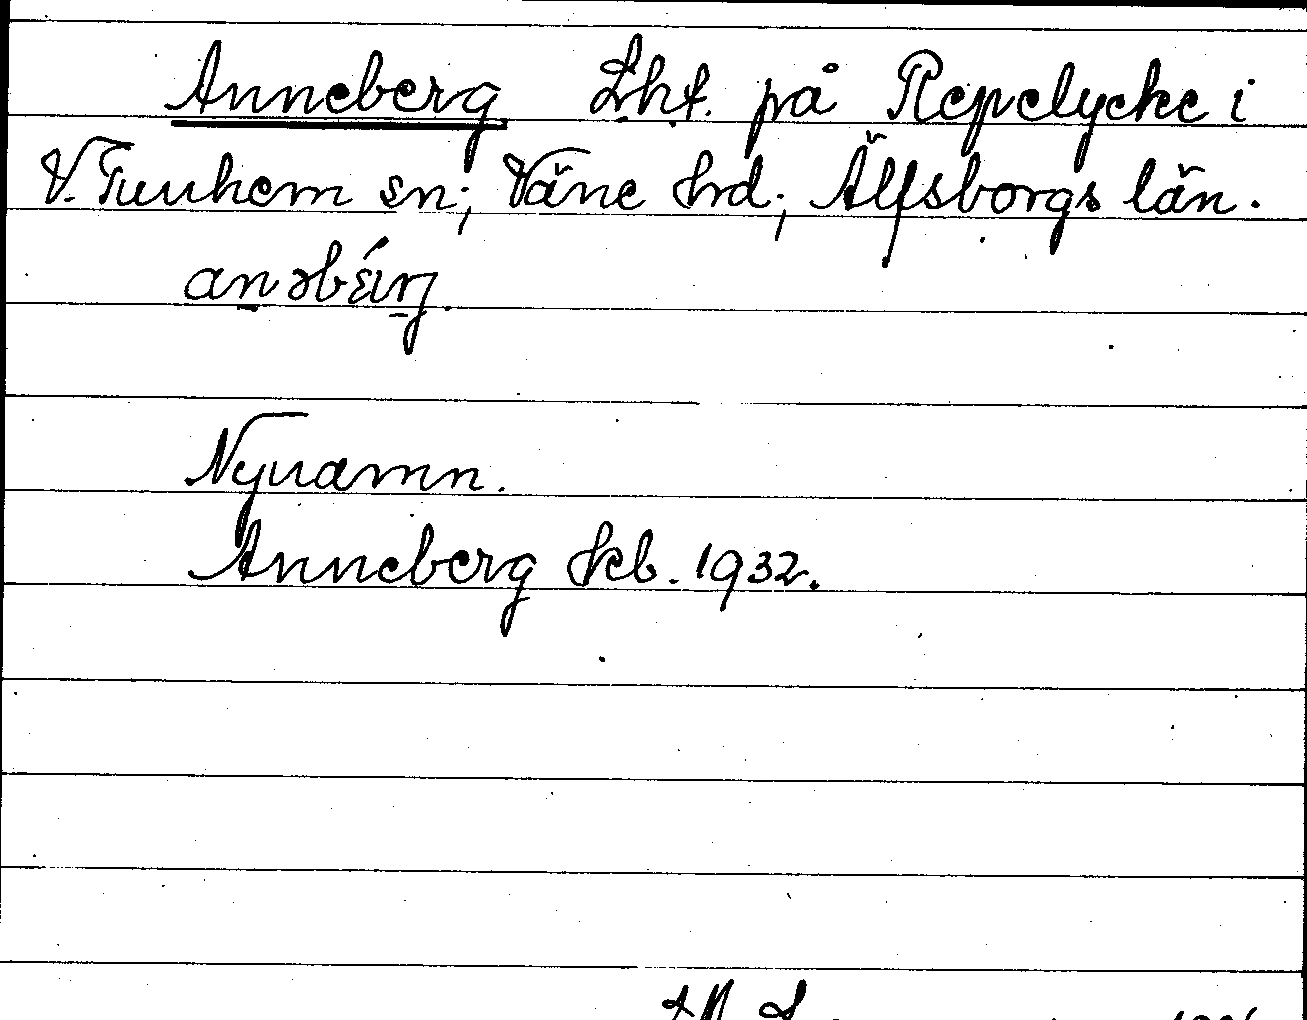 Anneberg Lht. på Repelycke i
V. Tunhem sn; Väne hrd; Älfsborgs län.
Nynamn.
Anneberg Jeb. 1932.